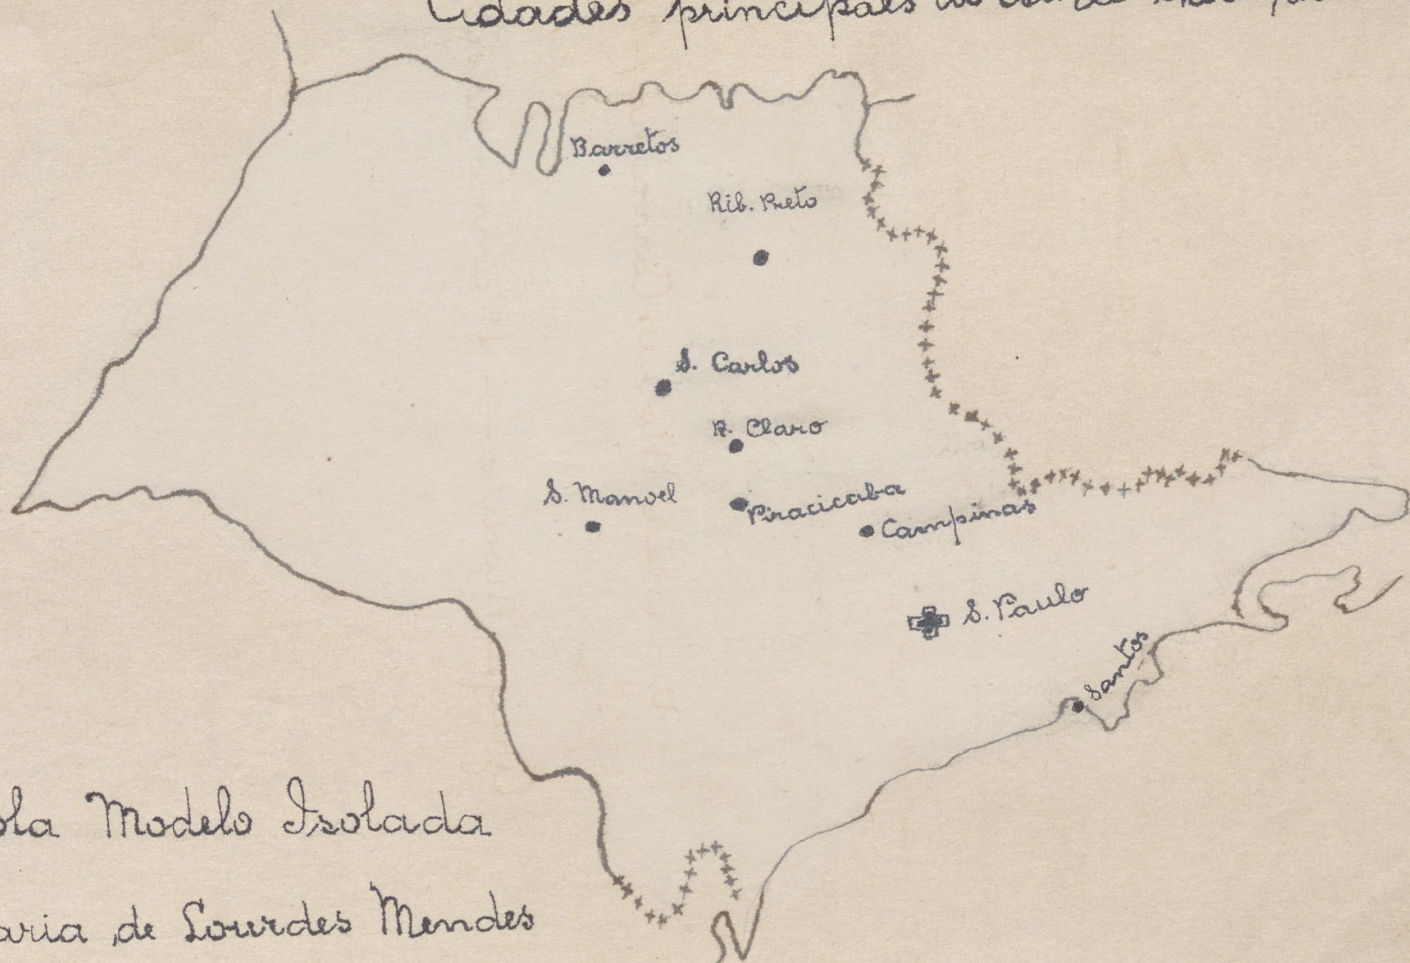 Cidades principaes
Barretos
Rib. Preto
S. Carlos
R. Claro
S. Manoel
Piracicaba
Campinas
S. Paulo
Santos
ola Modelo Isolada
aria de Lourdes Mendes